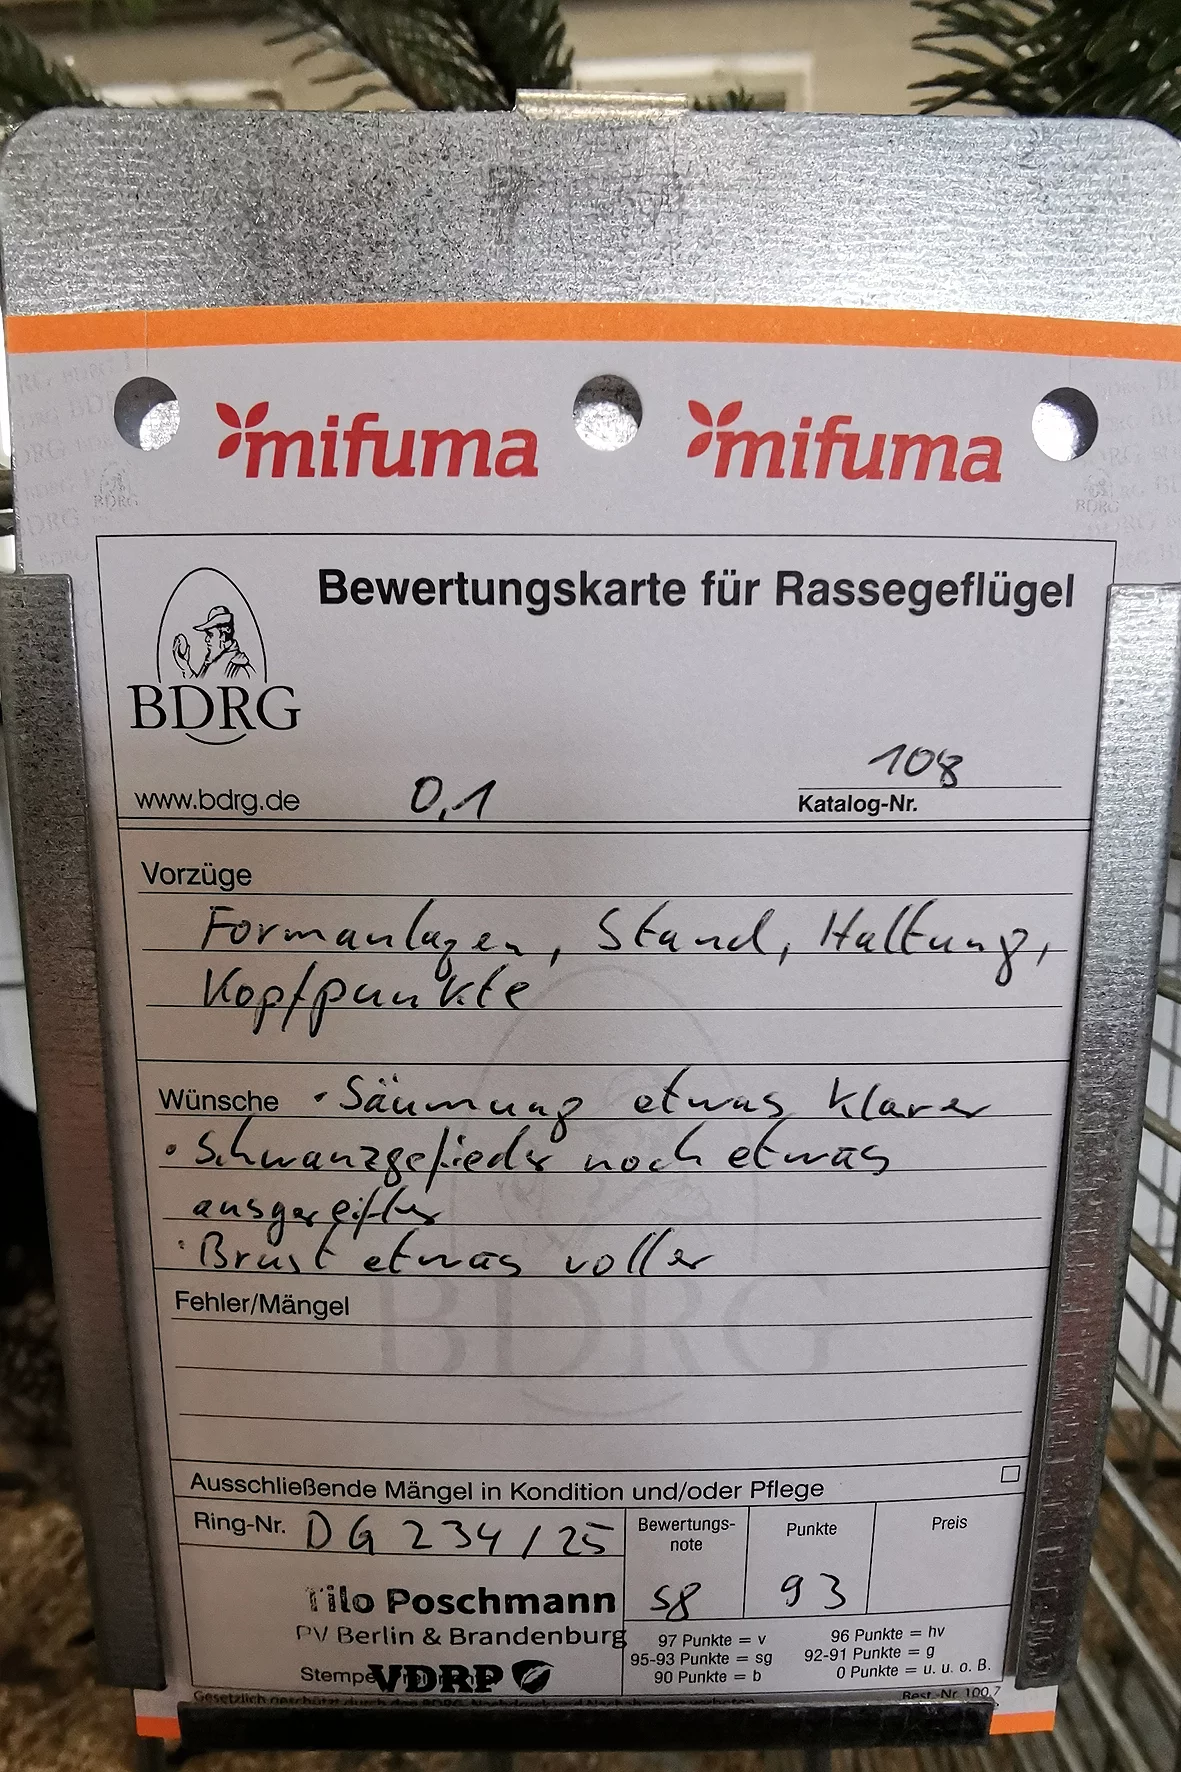 mifuma mifuma
Bewertungskarte für Rassegeflügel
BDRG
www.bdrg.de 0,1
108
Katalog-Nr.
Vorzüge
Formanlagen, Stand, Haltung,
Kopfpunkte
Wünsche · Säumung etwas klarer
· Schwanzgefieder noch etwas
ausgereifter
· Brust etwas voller
Fehler/Mängel
BDRG
Ausschließende Mängel in Kondition und/oder Pflege
Ring-Nr. DG 234/25
Bewertungs-
note
sg
Punkte
93
Preis
Tilo Poschmann
PV Berlin & Brandenburg
VDRP
97 Punkte = v 96 Punkte = hv
95-93 Punkte = sg 92-91 Punkte = g
90 Punkte = b 0 Punkte = u. u. o. B.
Best.-Nr. 100.7